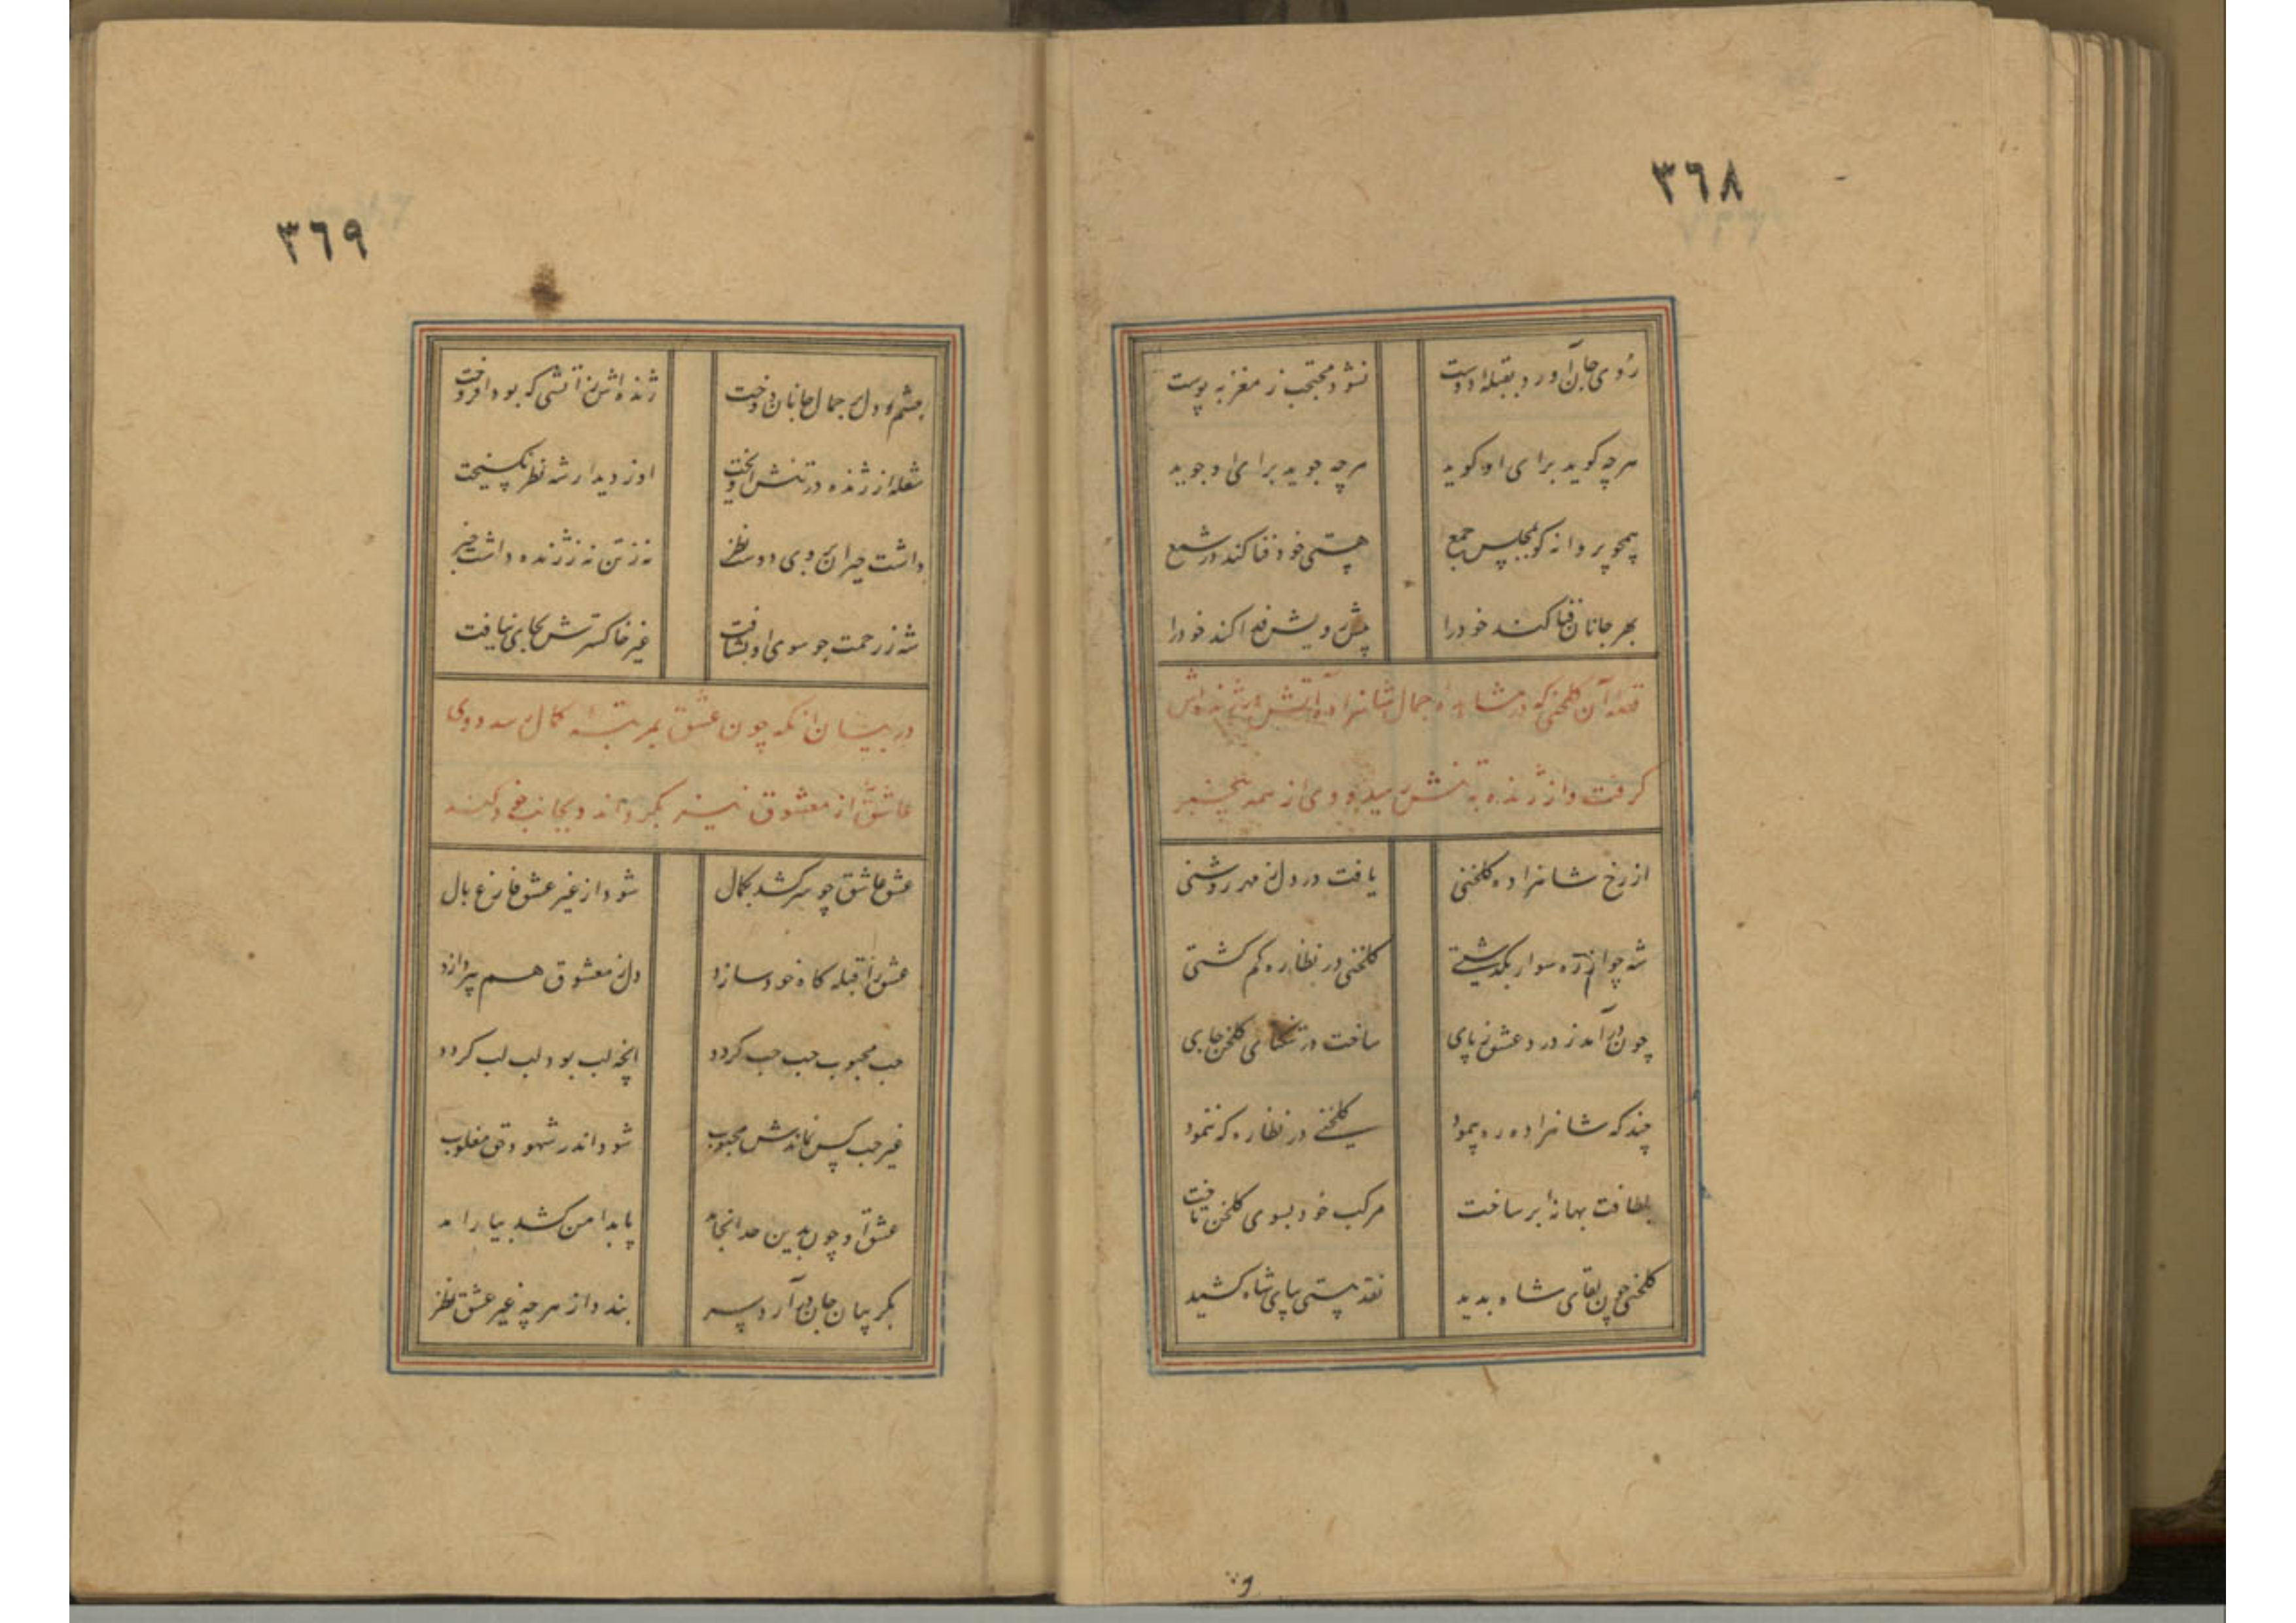 ٣٦٨
روی جان آورد بقبله دوست نشود محتجب ز مغز به پوست
هر چه کوید برای او کوید هر چه جوید برای او جوید
همچو پروانه کو بمجلس جمع هستی خود فنا کند در شمع
بهر جانان فنا کند خود را پیش رویش فدا کند خود را
قصه آن کلخنی که در مشاهده جمال شاهزاده آتش در ژنده اش
کرفت و از ژنده به تنش رسید و وی از همه بیخبر
از رخ شاهزاده کلخنی یافت در دل ز مهر روشنی
شه چو از ره سوار بکذشتی کلخنی در نظاره کم کشتی
چون در آمد ز درد عشق ز پای ساخت در تنکنای کلخن جای
چند که شاهزاده ره پیمود کلخنی در نظاره که ننمود
بلطافت بهانه بر ساخت مرکب خود بسوی کلخن تاخت
کلخنی چون لقای شاه بدید نقد هستی بپای شاه کشید
٣٦٩
چشم و دل بر جمال جانان دوخت ژنده اش ز آتشی که بود افروخت
شعله از ژنده در تنش آویخت او ز دیدار شه نظر نکسیخت
داشت حیران بروی دوست نظر نه ز تن نه ز ژنده داشت خبر
شه ز رحمت چو سوی او بشتافت غیر خاکسترش بجای نیافت
در بیان آنکه چون عشق بمرتبه کمال رسد روی
عاشق از معشوق نیز بکرداند و بجانب خود کند
عشق عاشق چو سر کشد بکمال شود از غیر عشق فارغ بال
عشق را قبله کاه خود سازد دل ز معشوق هم بپردازد
حب محبوب حب حب کردد آنچه لب بود لب لب کردد
غیر حب کس نماندش محبوب شود اندر شهود حق مغلوب
عشق او چون بدین حد انجامد پا بدامن کشد بیارامد
بکریبان جان در آرد سر بندد از هر چه غیر عشق نظر